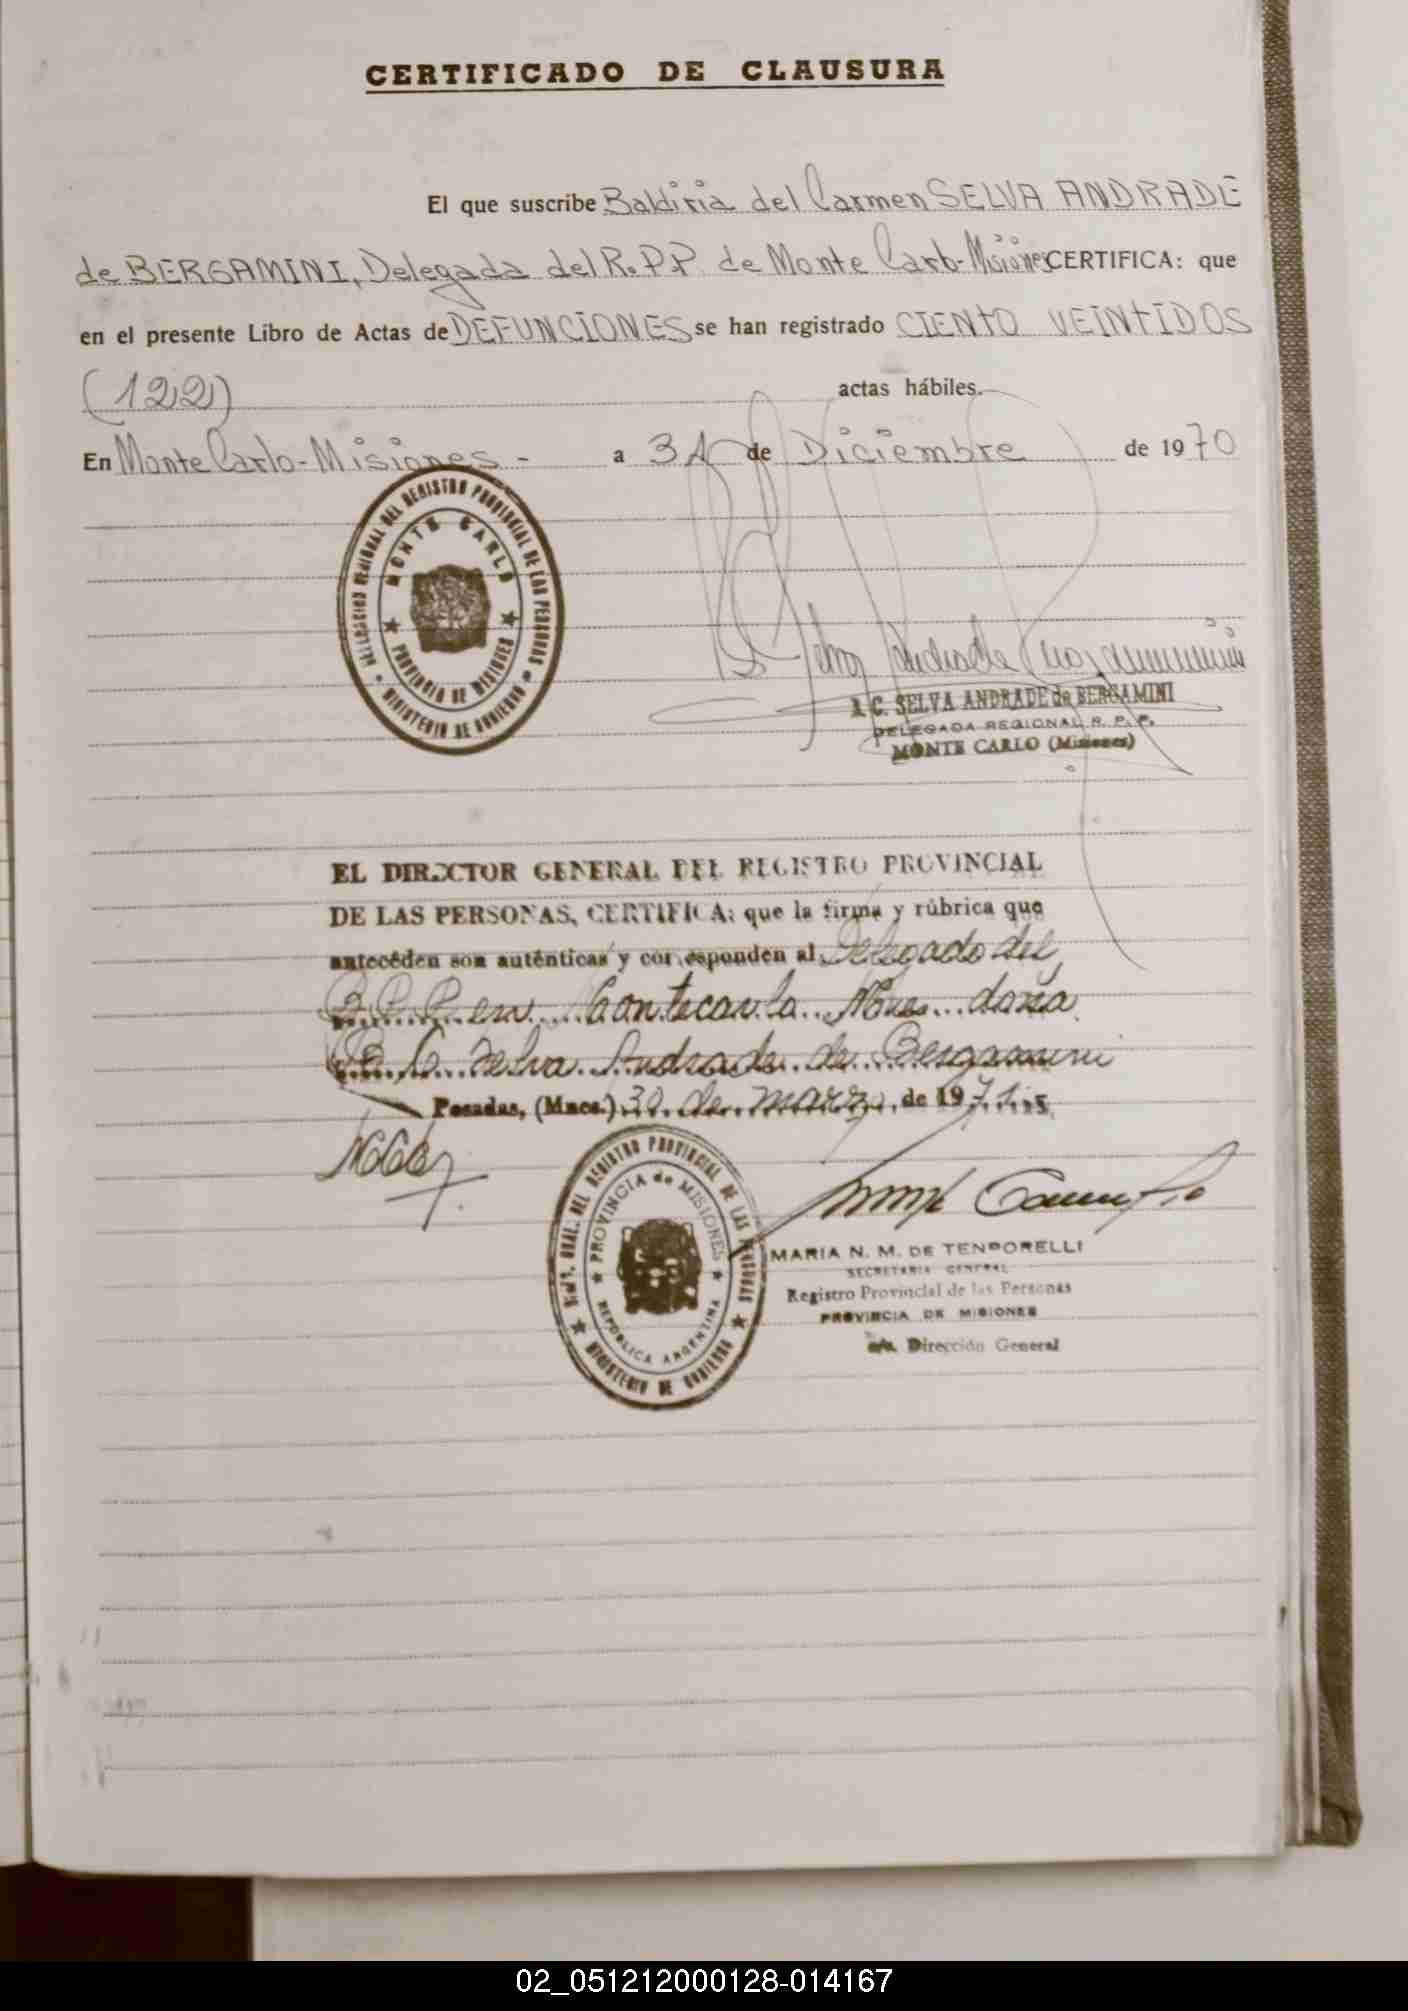 CERTIFICADO DE CLAUSURA
El que suscribe Baldiria del Carmen SELVA ANDRADE
de BERGAMINI, Delegada del R.P.P. de Monte Carlo-Misiones CERTIFICA: que
en el presente Libro de Actas de DEFUNCIONES se han registrado CIENTO VEINTIDOS
(122) actas hábiles.
En Monte Carlo-Misiones - a 31 de Diciembre de 1970
DELEGACION REGIONAL DEL REGISTRO PROVINCIAL DE LAS PERSONAS
MONTE CARLO
PROVINCIA DE MISIONES
MINISTERIO DE GOBIERNO
C. SELVA ANDRADE de BERGAMINI
DELEGADA REGIONAL R. P. P.
MONTE CARLO (Misiones)
EL DIRECTOR GENERAL DEL REGISTRO PROVINCIAL
DE LAS PERSONAS, CERTIFICA: que la firma y rúbrica que
anteceden son auténticas y corresponden al Delegado del
R.P.P. en Montecarlo Mnes. doña
B. C. Selva Andrade de Bergamini
Posadas, (Mnes.) 30 de marzo de 1971
DIRC. GRAL. DEL REGISTRO PROVINCIAL DE LAS PERSONAS
PROVINCIA de MISIONES
REPUBLICA ARGENTINA
MINISTERIO DE GOBIERNO
MARIA N. M. DE TEMPORELLI
SECRETARIA GENERAL
Registro Provincial de las Personas
PROVINCIA DE MISIONES
a/c. Dirección General
02_051212000128-014167